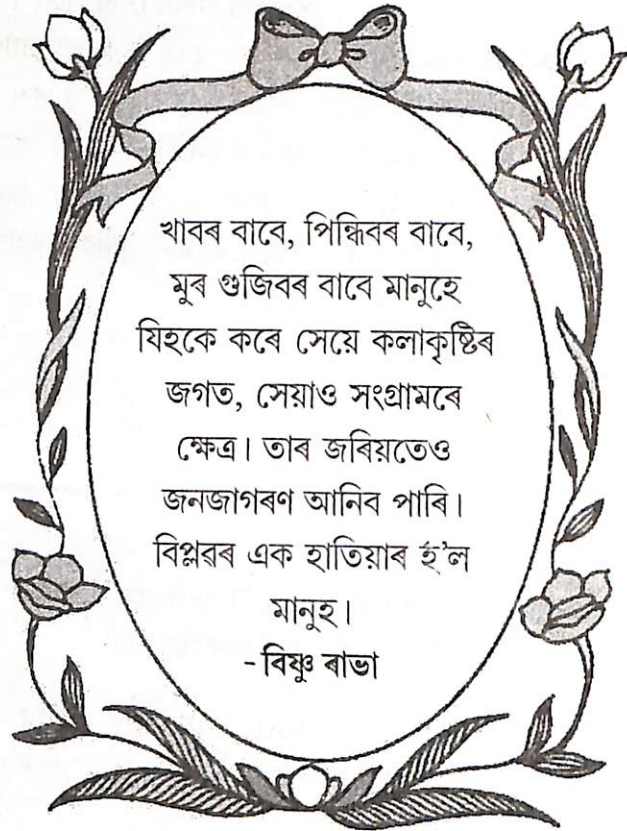 খাবৰ বাবে, পিন্ধিবৰ বাবে,
মুৰ গুজিবৰ বাবে মানুহে
যিহকে কৰে সেয়ে কলাকৃষ্টিৰ
জগত, সেয়াও সংগ্ৰামৰে
ক্ষেত্ৰ। তাৰ জৰিয়তেও
জনজাগৰণ আনিব পাৰি।
বিপ্লৱৰ এক হাতিয়াৰ হ'ল
মানুহ।
- বিষ্ণু ৰাভা